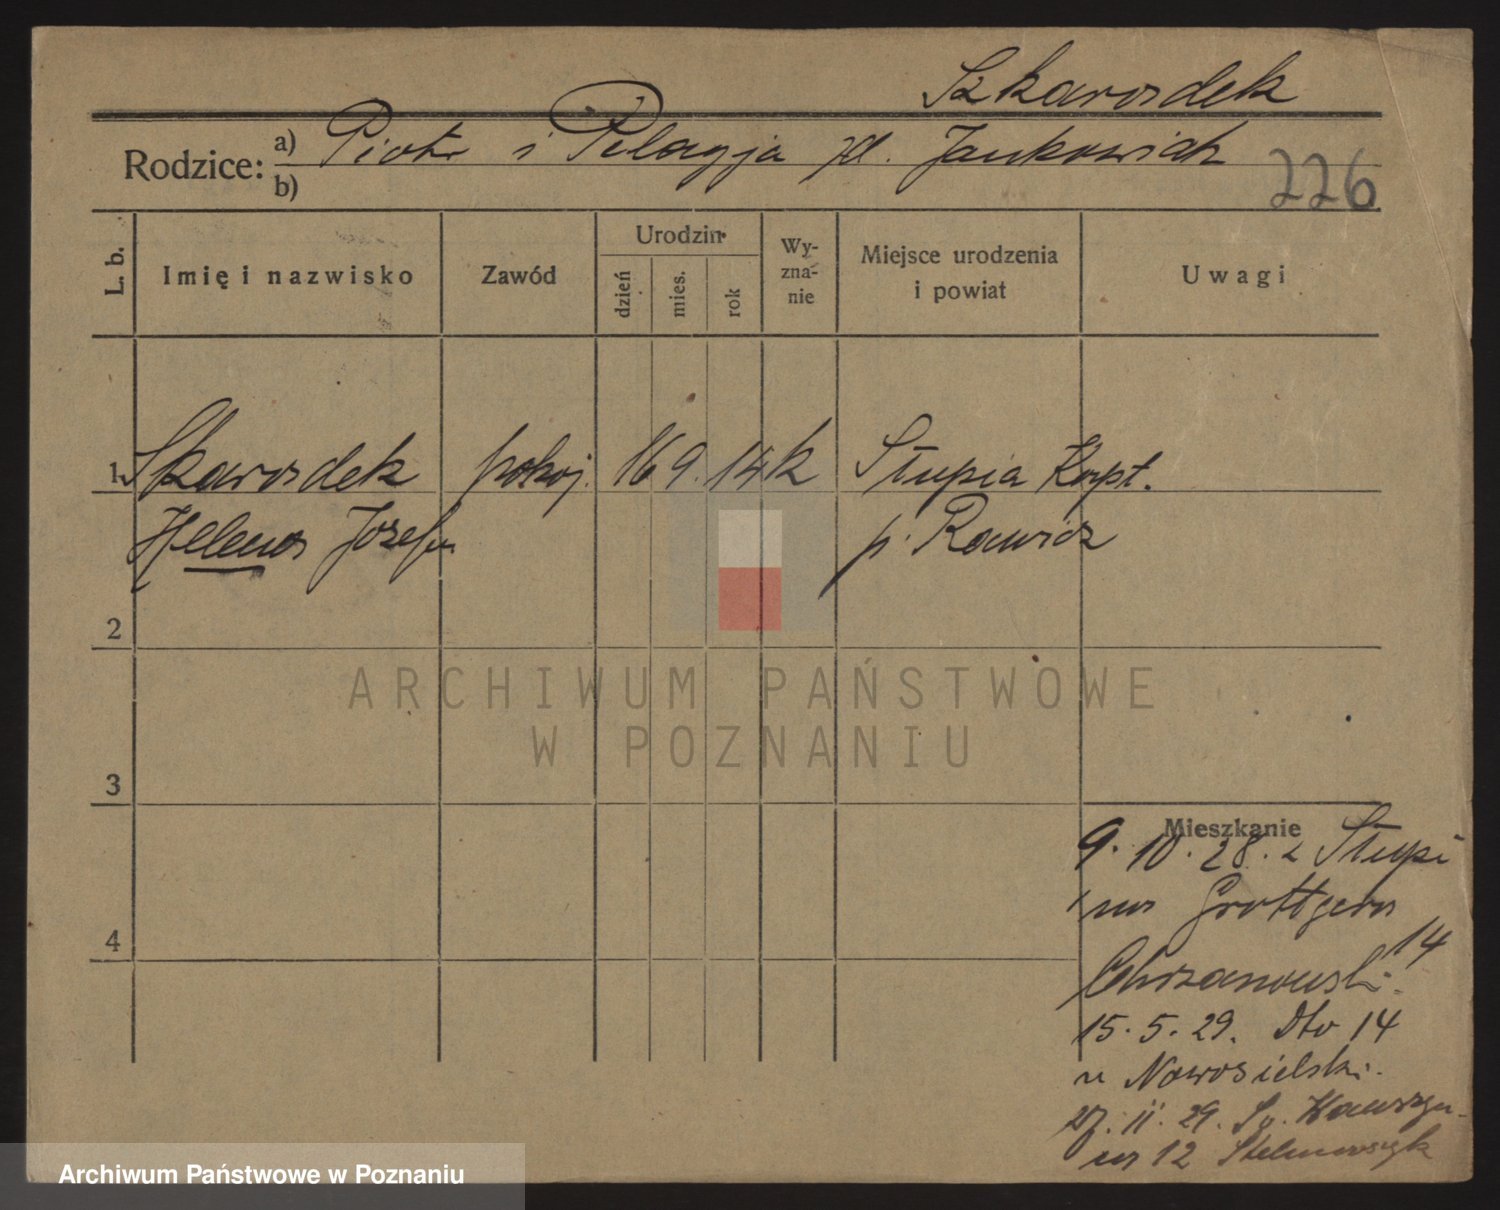 Szkarosdek
Rodzice: a) Piotr i Pelagja zd. Jankowiak
b)
226
L. b.
Imię i nazwisko
Zawód
Urodzin
dzień
mies.
rok
Wy-
zna-
nie
Miejsce urodzenia
i powiat
Uwagi
1 Skarosdek pokoj. 16 9. 14 k Słupia Kąpt.
Helena Józefa p. Rawicz
2
3
4
ARCHIWUM PAŃSTWOWE
W POZNANIU
Mieszkanie
9. 10. 28. z Słupi
na Grottgera
14
Chrzanowski.
15. 5. 29. Dto 14
u Nowosielski.
27. 11. 29. Św.
12
Archiwum Państwowe w Poznaniu